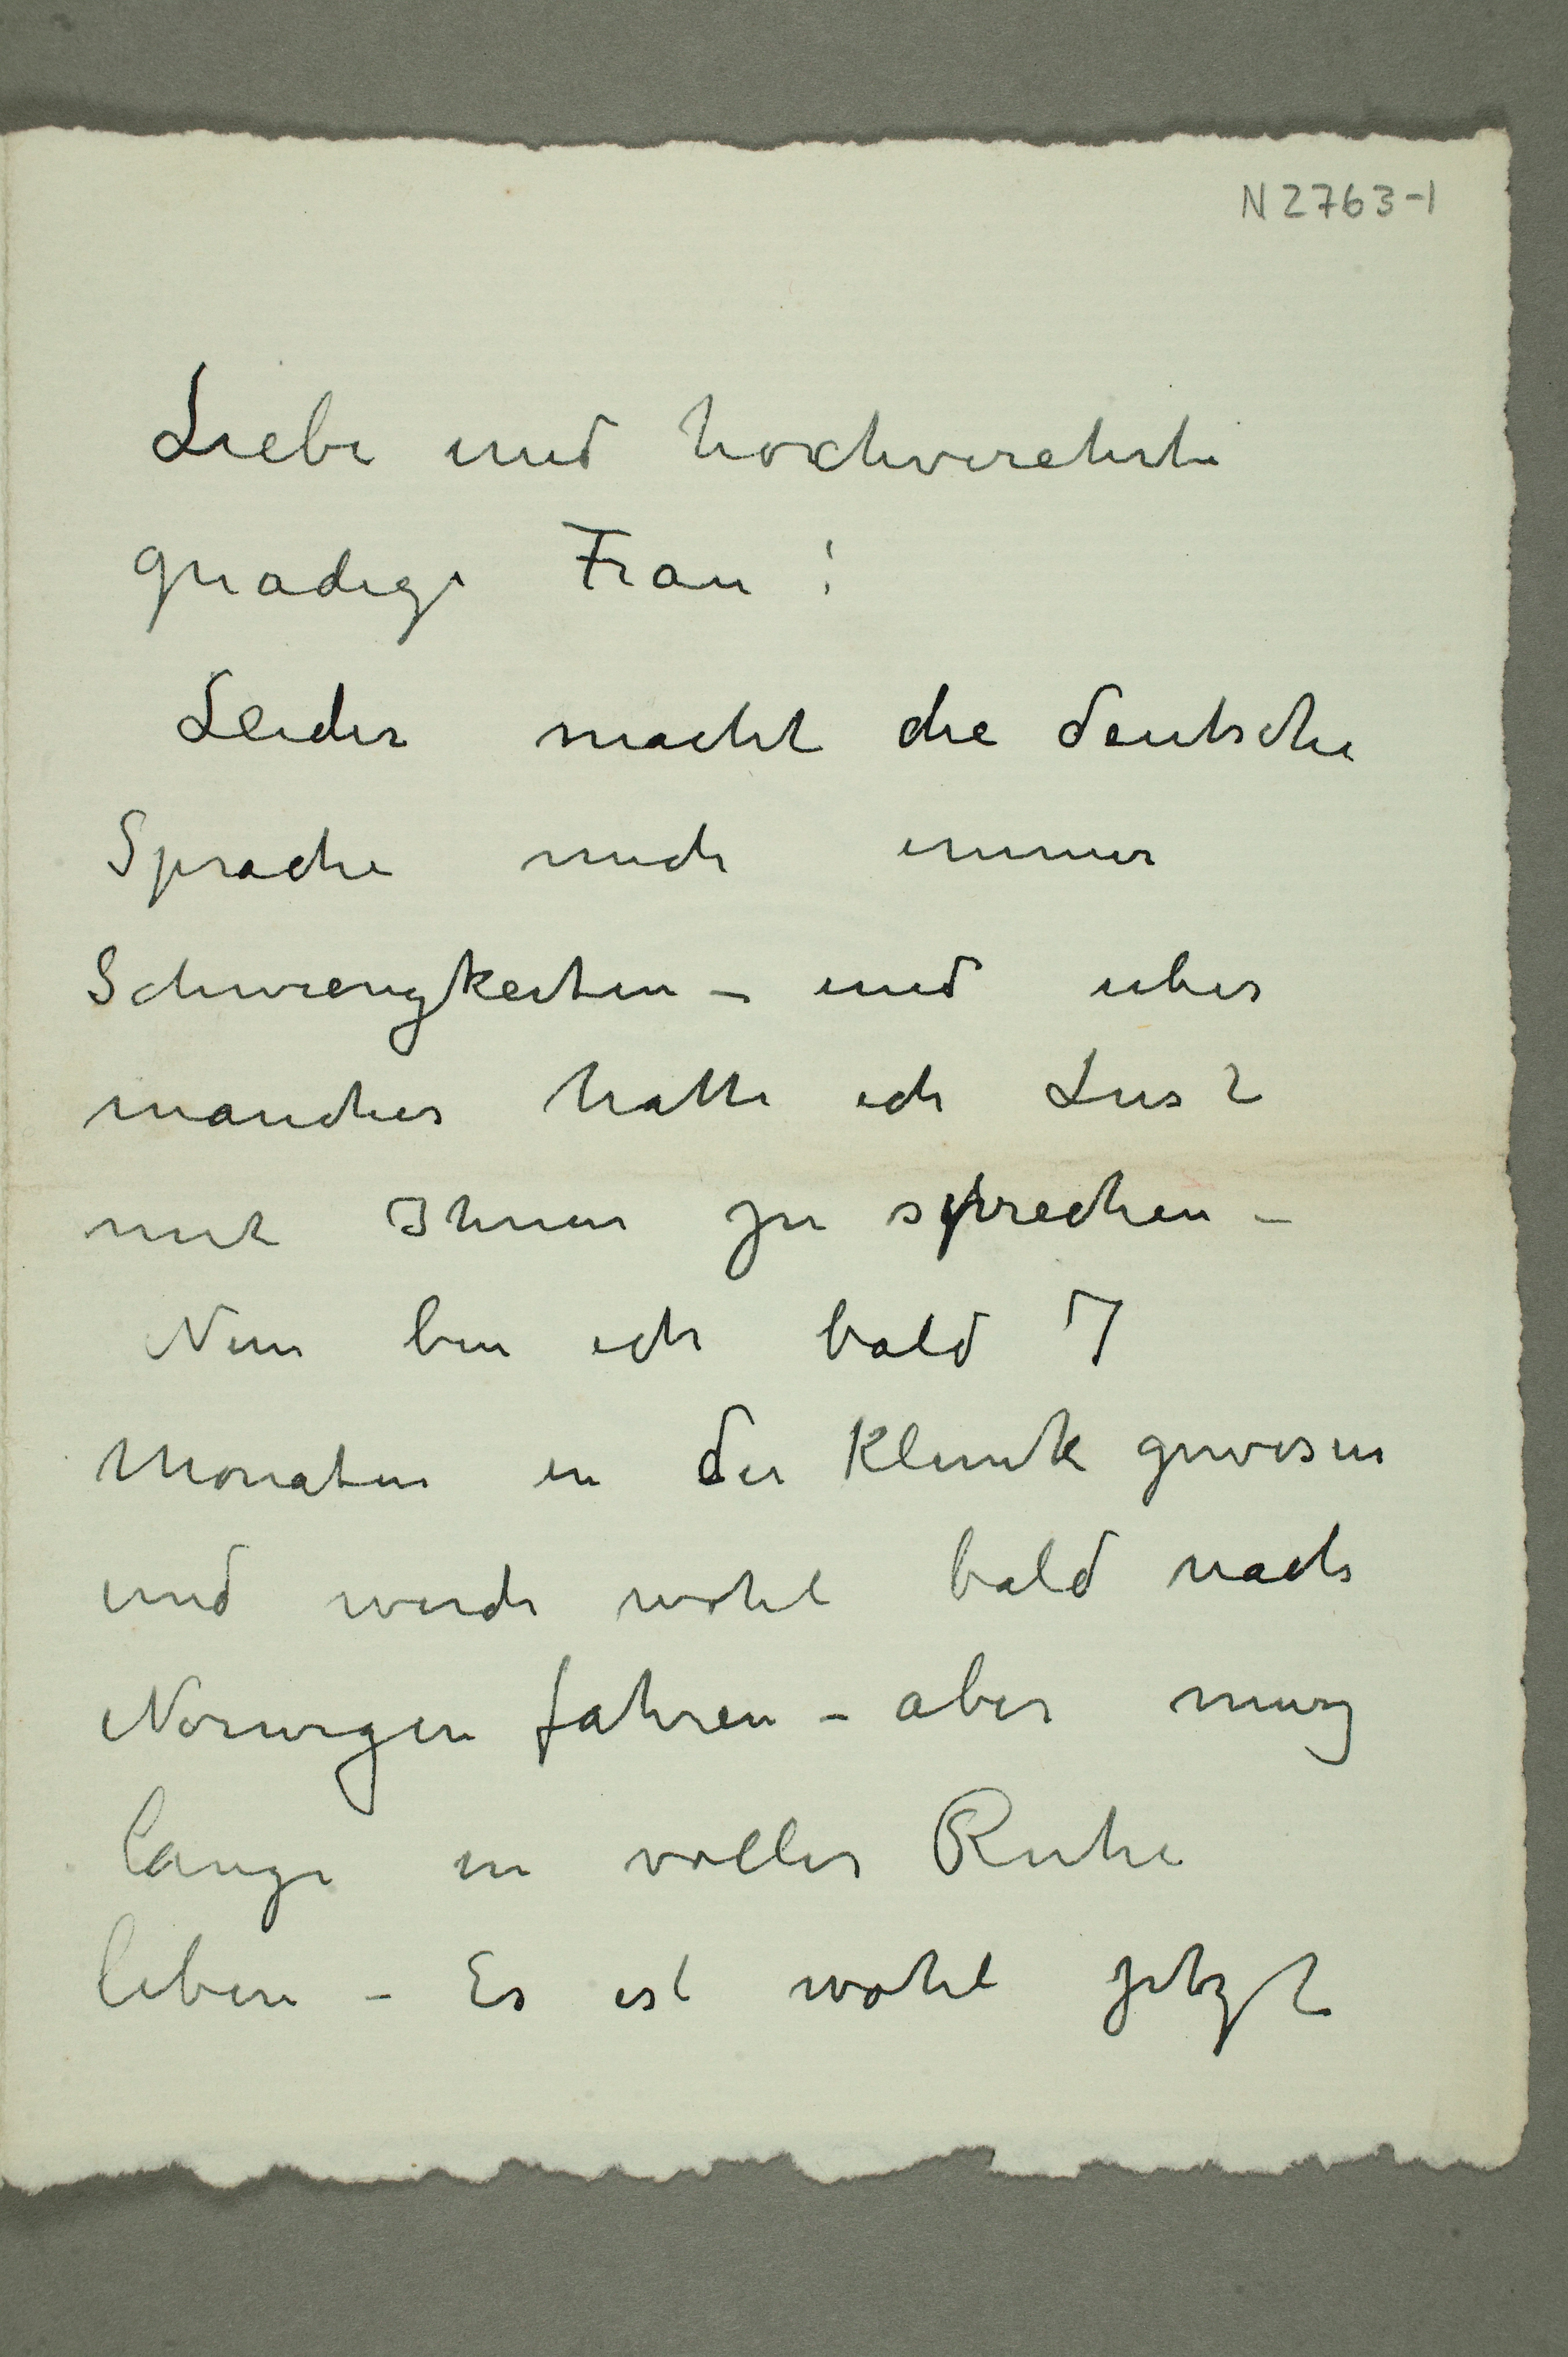 N 2763-1
Liebe und hochverehrte
gnadige Frau!
Leider macht die deutsche
Sprache mich immer
Schwierigkeiten – und uber
manches hatte ich Lust
mit Ihnen zu sprechen –
Nun bin ich bald 7
Monaten in der Klinik gewesen
und werde wohl bald nach
Norwegen fahren – aber muss
lange in voller Ruhe
leben – Es ist wohl jetzt